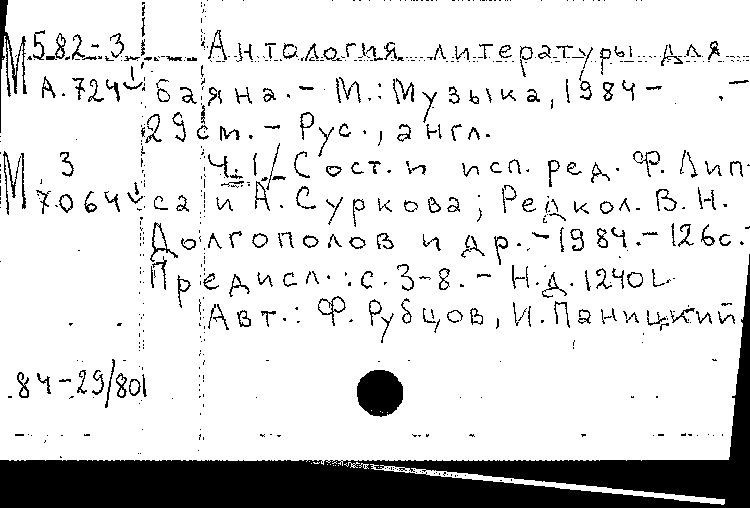 М 582-3 Антология литературы для
А.724 Баяна. - М.: Музыка, 1984 - . -
29см. - Рус., англ.
М 3 Ч.1/ Сост. и исп. ред. Ф. Лип-
7064 са и А. Суркова; Редкол. В. Н.
Долгополов и др. - 1984. - 126с. -
Предисл.: с. 3-8. - Н.д. 1240 L
Авт.: Ф. Рубцов, И. Паницкий.
84-29/801